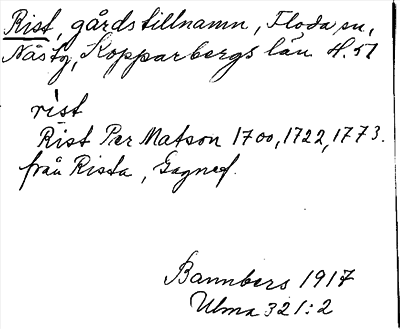 Rist, gårdstillnamn, Floda sn,
Näs tg, Kopparbergs län H. 51
rist
Rist Per Matson 1700, 1722, 1773.
från Rista, Gagnef.
Bannbers 1917
Ulma 321:2